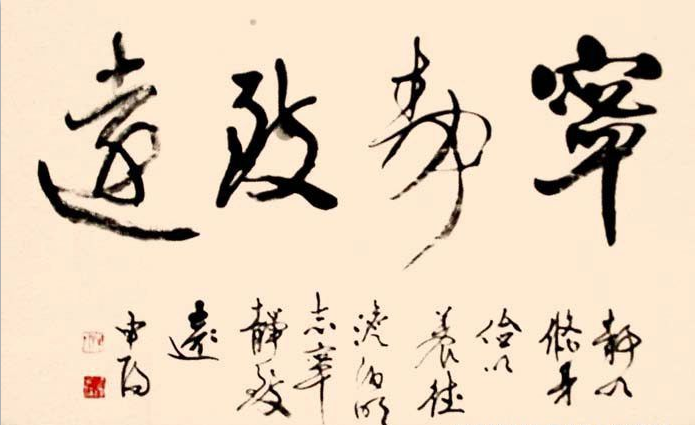 寧靜致遠
靜以
修身
儉以
養德
澹泊明
志寧
靜致
遠